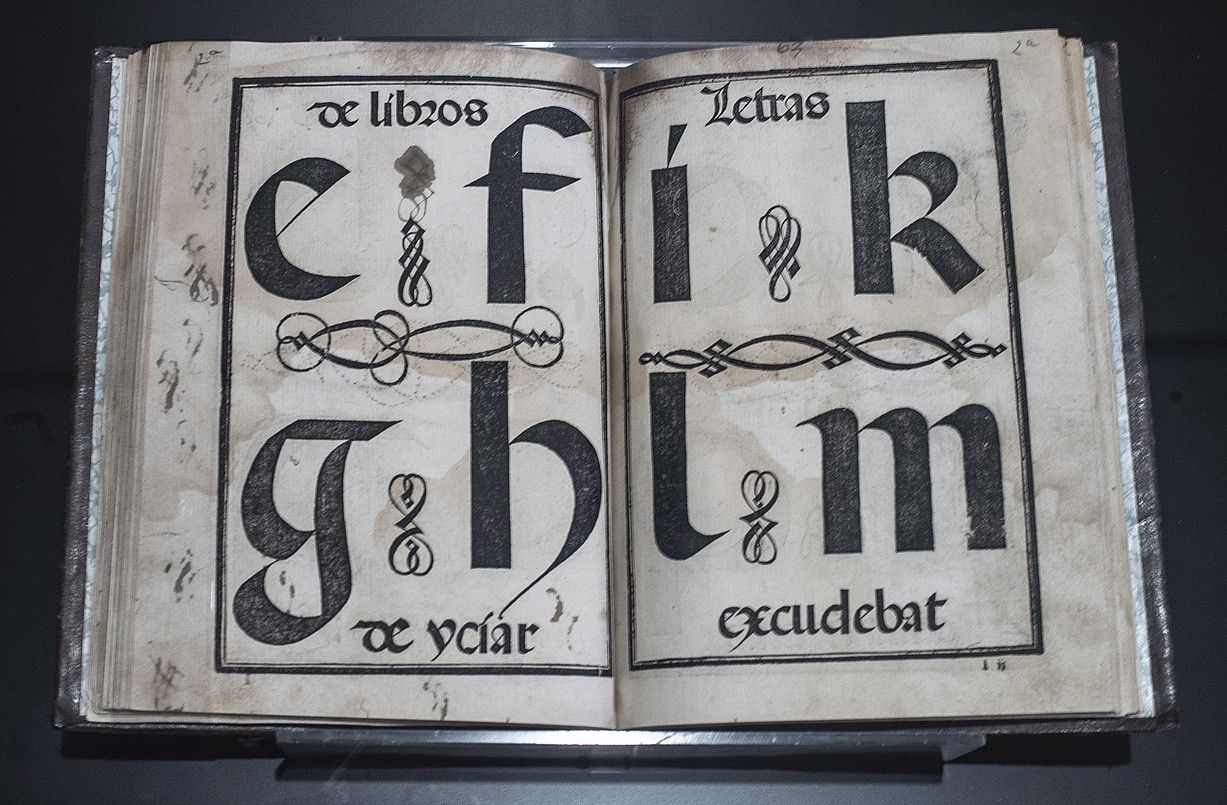 2ª
de libros
e f
g h
de yciar
63 2ª
Letras
i k
l m
excudebat